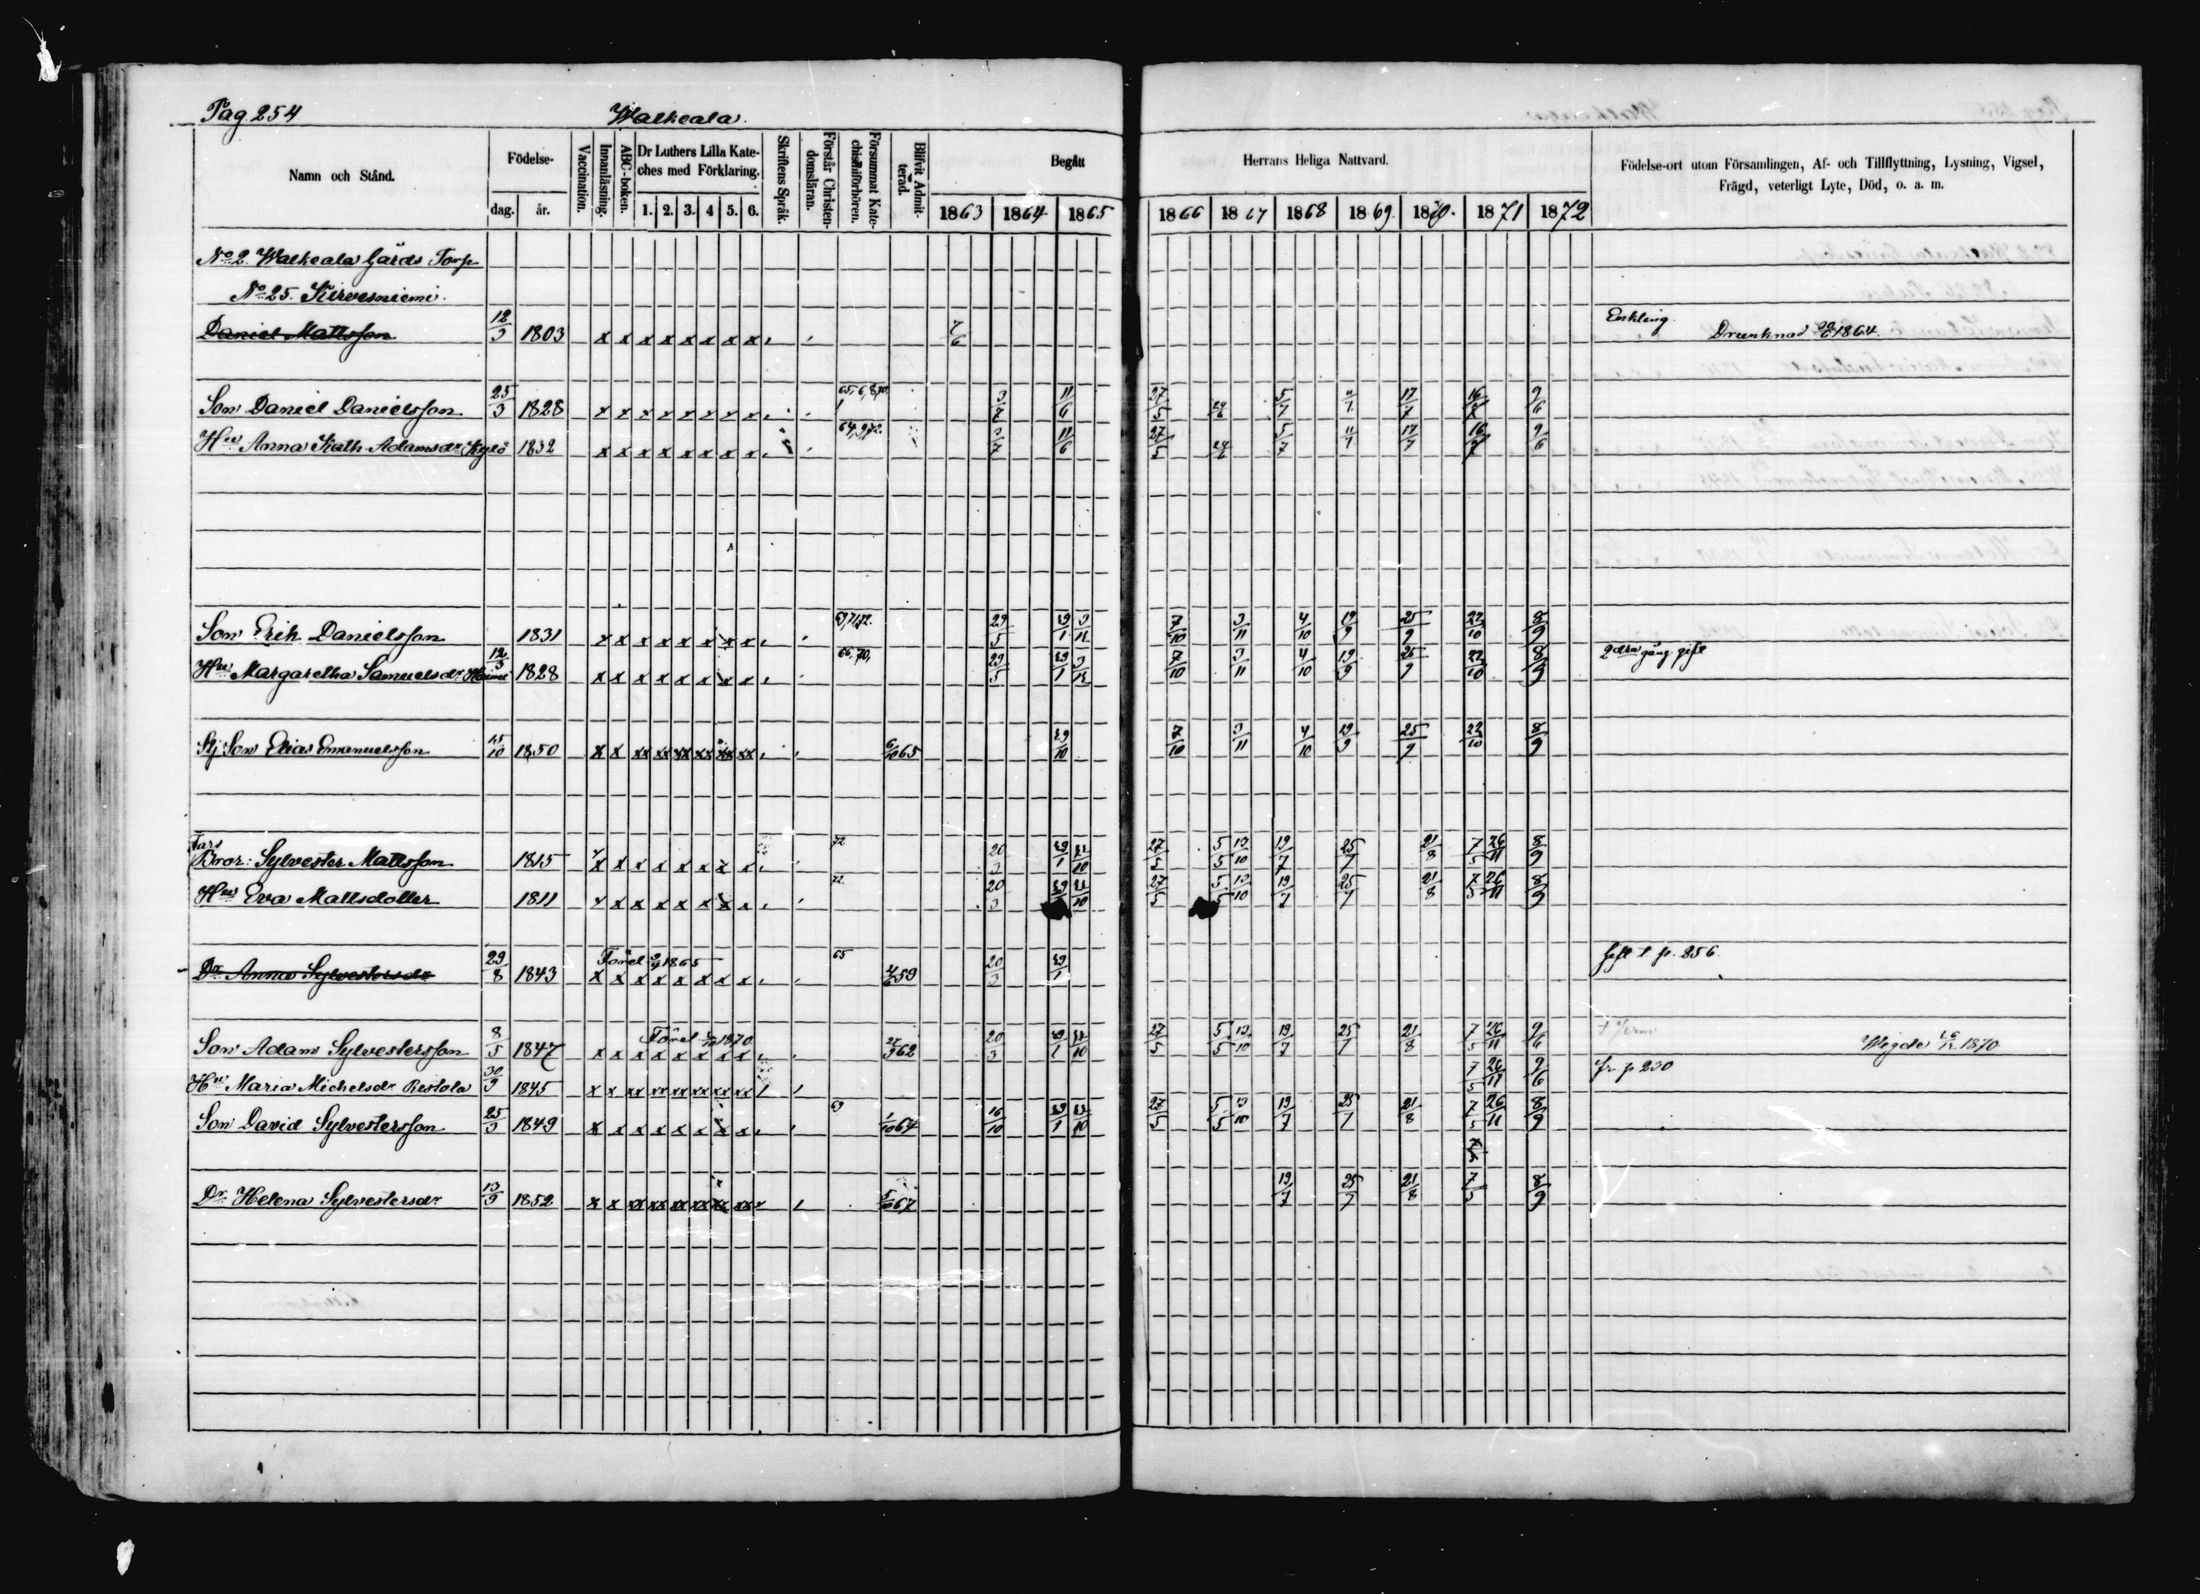 Pag. 254 Walkeala.
Namn och Stånd. Födelse- dag. år. Vaccination. Innanläsning. ABC-boken. Dr Luthers Lilla Kateches med Förklaring. 1. 2. 3. 4 5. 6. Skriftens Språk. Förstår Christendomsläran. Försummat Katechismiförhören. Blifvit Admitterad. Begått 1863 1864 1865 Herrans Heliga Nattvard. 1866 1867 1868 1869. 1870. 1871 1872 Födelse-ort utom Församlingen, Af- och Tillflyttning, Lysning, Vigsel, Frägd, veterligt Lyte, Död, o. a. m.
No 2. Walkeala Gårds Torp
No 25. Kirvesniemi.
Daniel Mattsson 12/3 1803 x x x x x x x x 7/6 Enkling. Drunknad 1864.
Son Daniel Danielsson 25/3 1828 x x x x x x x x 3/7 11/6 27/5 24/6 5/7 11/7 17/7 16/7 9/6
Hu Anna Kath. Adamsdr 1832 x x x x x x x x 64,9,72. 3/7 11/6 27/5 24/6 5/7 11/7 17/7 16/7 9/6
Son Erik Danielsson 1831 x x x x x x x x 29/5 29/1 7/10 3/11 4/10 19/9 25/9 22/10 8/9
Hu Margaretha Samuelsdr 12/3 1828 x x x x x x x x 66, 70, 29/5 29/1 7/10 3/11 4/10 19/9 25/9 22/10 8/9 2dra gång gift
Stj Son Elias Emanuelsson 15/10 1850 x x xx xx xx xx xx xx 6/10 65 29/10 7/10 3/11 4/10 19/9 25/9 22/10 8/9
Fars
Bror: Sylvester Mattsson 1815 x x x x x x x x 72 20/3 29/1 27/5 5/5 13/10 19/7 25/7 21/8 7/5 26/11 8/9
Hu Eva Mattsdotter 1811 x x x x x x x x 72. 20/3 27/5 5/5 13/10 19/7 25/7 21/8 7/5 26/11 8/9
Dr Anna Sylvestersdr 29/8 1843 x x x x x x x x 1865 65 59 20/3 29/1 gift t. p. 256.
Son Adam Sylvestersson 8/5 1847 x x x x x x x x 1870 62 20/3 29/1 27/5 5/5 13/10 19/7 25/7 21/8 7/5 26/11 9/6 Wigde 1870
Hu Maria Michelsdr Ristola 30/9 1845 x x xx xx xx xx xx xx 7/5 26/11 9/6 fr p 230
Son David Sylvestersson 25/3 1849 x x x x x x x x 69 1/10 64 16/10 29/1 27/5 5/5 13/10 19/7 25/7 21/8 7/5 26/11 8/9
Dr Helena Sylvestersdr 13/9 1852 x x xx xx xx xx xx xx 5/10 67 19/7 25/7 21/8 7/5 8/9